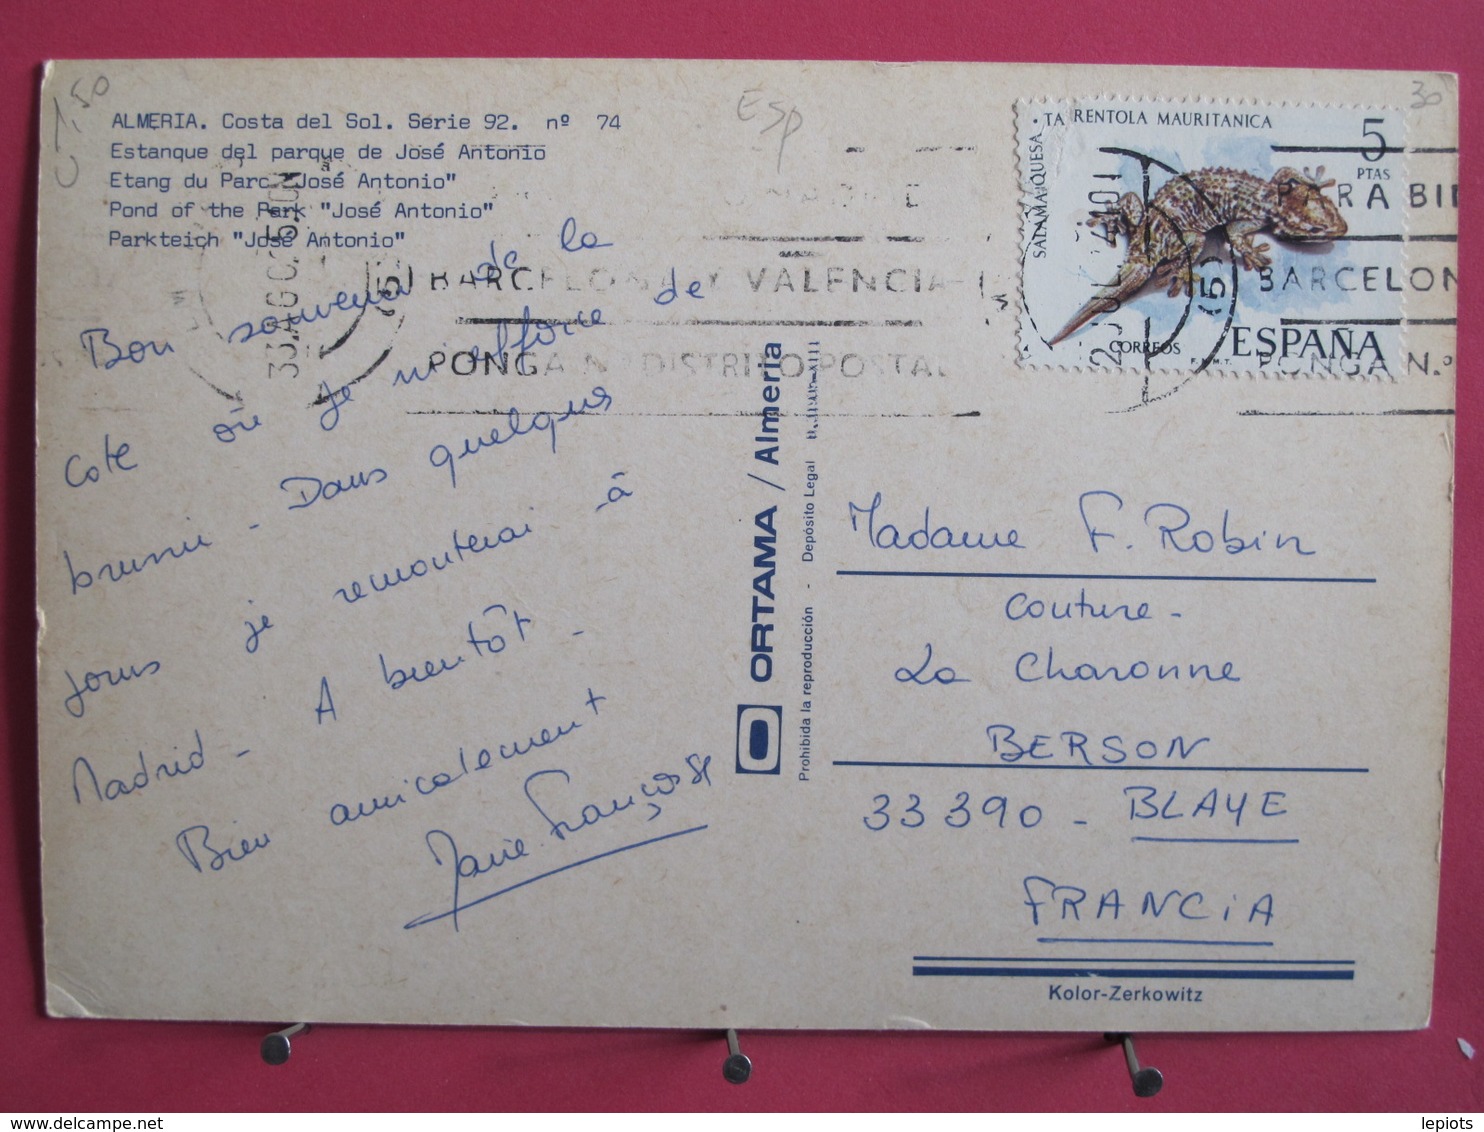 1,50
ALMERIA. Costa del Sol. Serie 92. nº 74
Estanque del parque de José Antonio
Etang du Parc "José Antonio"
Pond of the Park "José Antonio"
Parkteich "José Antonio"
Esp
30
TARENTOLA MAURITANICA
SALAMANQUESA
5
PTAS
CORREOS
ESPAÑA
F.N.M.T.
PARA BI
BARCELON
PONGA N.º
BARCELONA Y VALENCIA
PONGA N.º DISTRITO POSTAL
Bon souvenir de la
Cote où je m'efforce de
brunir - Dans quelques
jours je remonterai à
Madrid - A bientôt -
Bien amicalement
Marie-Françoise
ORTAMA / Almeria
Prohibida la reproducción - Depósito Legal
Madame F. Robin
Couture -
La Charonne
BERSON
33390 - BLAYE
FRANCiA
Kolor-Zerkowitz
lepiots